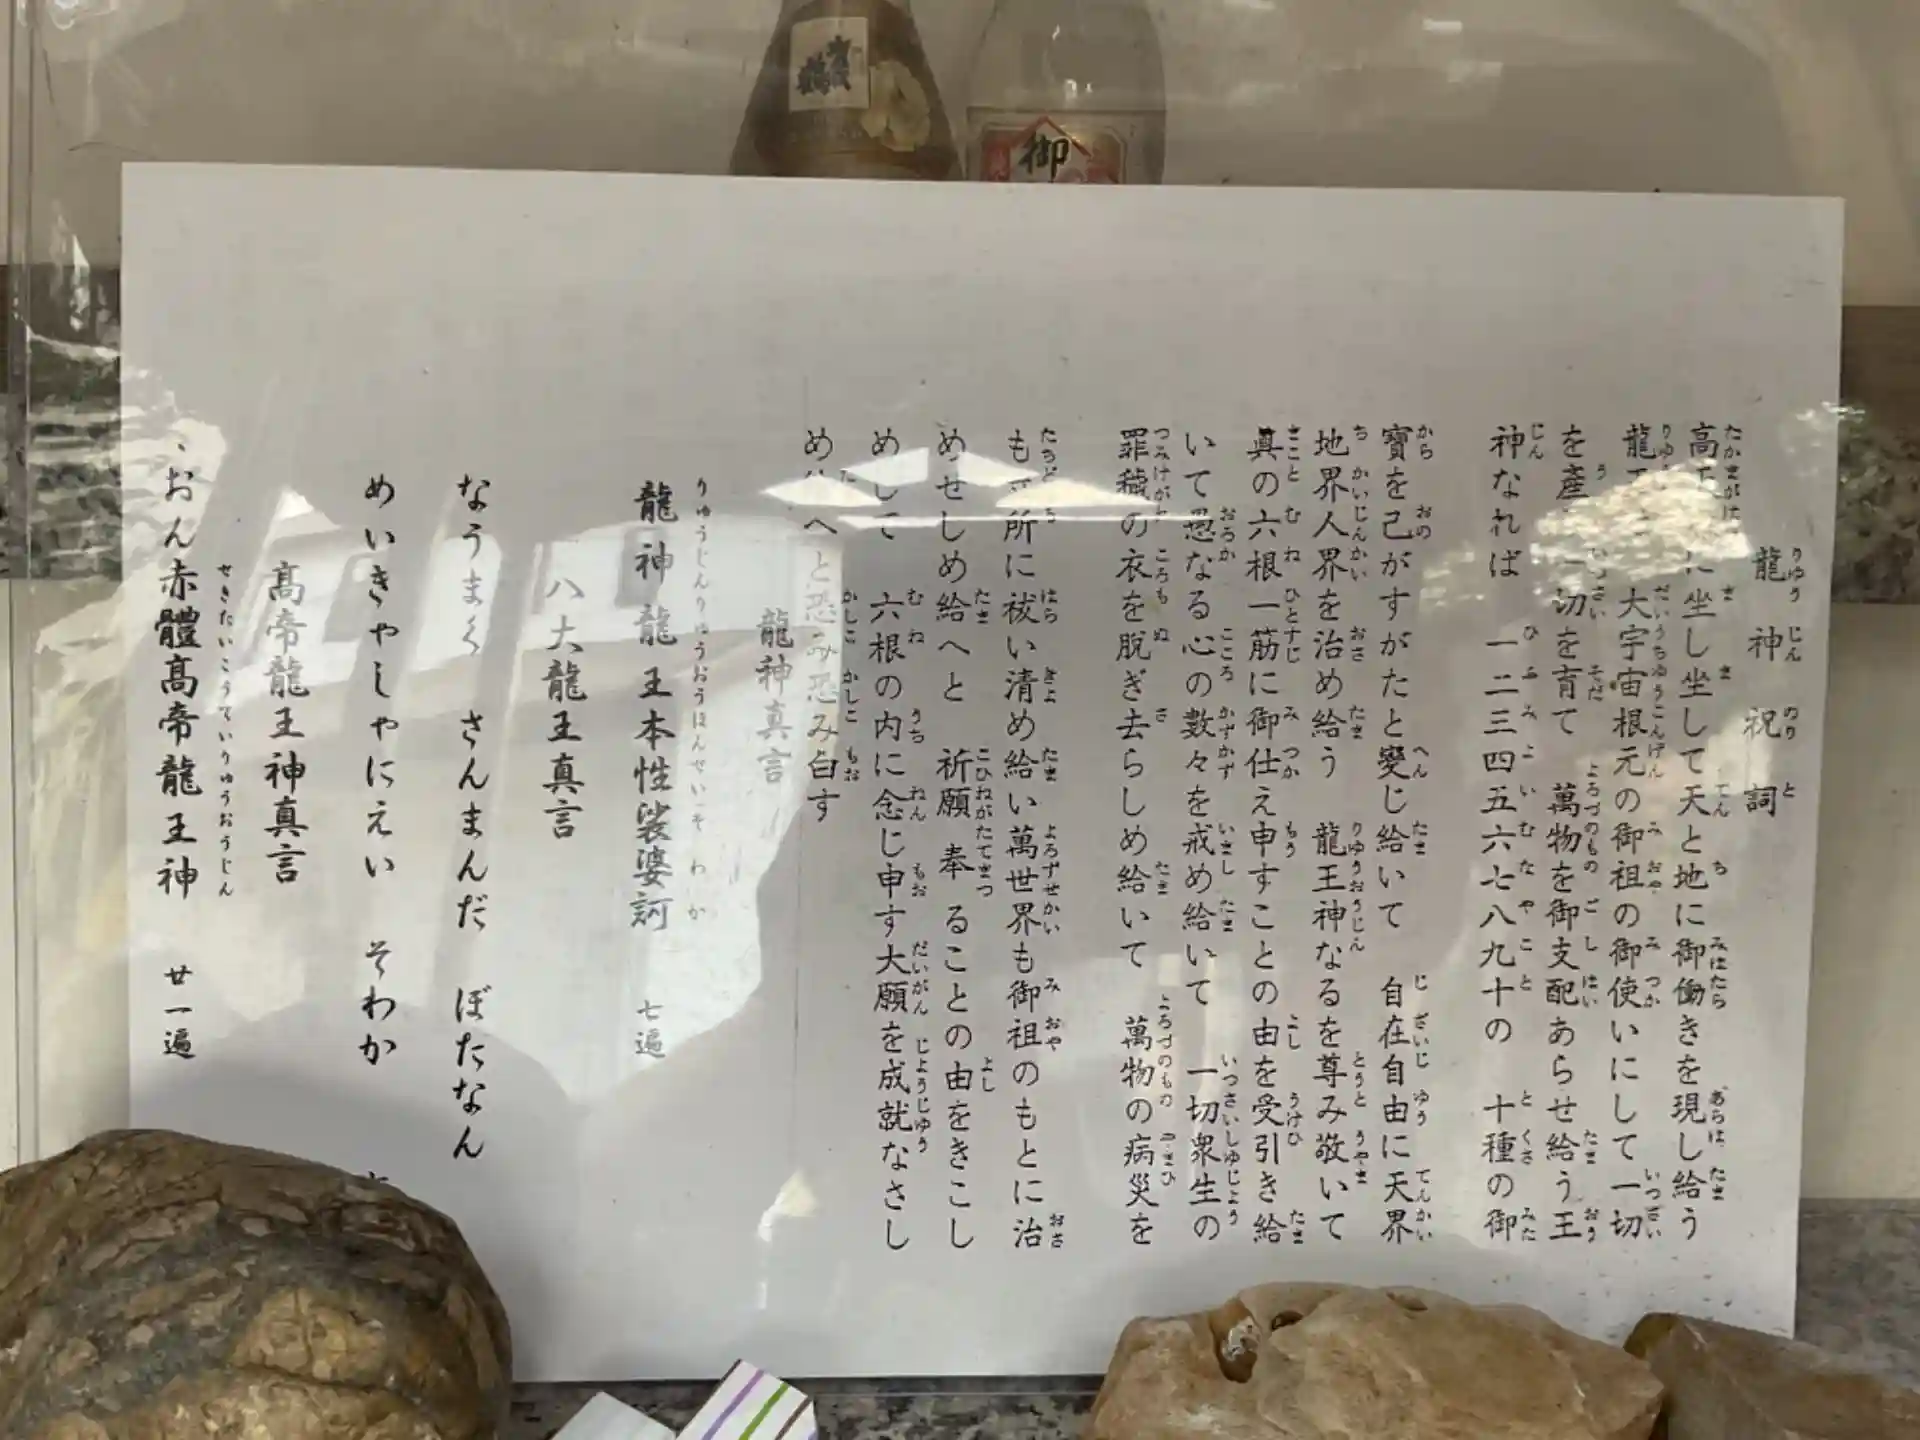 龍神祝詞
高 に坐し坐して天と地に御働きを現し給う
龍 大宇宙根元の御祖の御使いにして一切
を産 一切を育て 萬物を御支配あらせ給う王
神なれば 一二三四五六七八九十の 十種の御
寶を己がすがたと變じ給いて 自在自由に天界
地界人界を治め給う 龍王神なるを尊み敬いて
真の六根一筋に御仕え申すことの由を受引き給
いて愚なる心の数々を戒め給いて 一切衆生の
罪穢の衣を脱ぎ去らしめ給いて 萬物の病災を
も 所に祓い清め給い萬世界も御祖のもとに治
めせしめ給へと 祈願奉ることの由をきこし
めして 六根の内に念じ申す大願を成就なさし
め へと恐み恐み白す
龍神真言
龍神龍王本性裟婆訶 七遍
八大龍王真言
なうまく さんまんだ ぼたなん
めいきゃしゃにえい そわか
高帝龍王神真言
おん赤體高帝龍王神 廿一遍
御